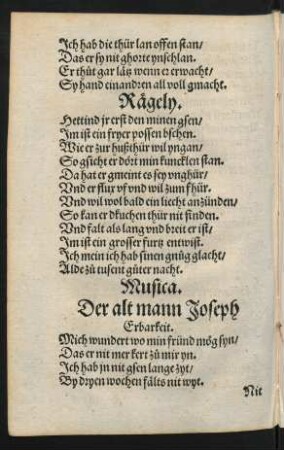 Ich hab die thür lan offen stan/
Das er sy nit ghorte ynschlan.
Er thüt gar lätz wenn er erwacht/
Sy hand einandren all voll gmacht.
Rägely.
Hettind jr erst den minen gsen/
Im ist ein fryer possen bschen.
Wie er zur hußthür wil yngan/
So gsicht er dört min kuncklen stan.
Da hat er gmeint es sey vnghür/
Vnd er flux vf vnd wil zum fhür.
Vnd wil wol bald ein liecht anzünden/
So kan er dkuchen thür nit finden.
Vnd falt als lang vnd breit er ist/
Im ist ein grosser furtz entwist.
Ich mein ich hab sinen gnüg glacht/
Alde zü tusent güter nacht.
Musica.
Der alt mann Joseph
Erbarkeit.
Mich wundert wo min fründ mög syn/
Das er nit mer kert zü mir yn.
Ich hab jn nit gsen lange zyt/
By dryen wochen fälts nit wyt.
Nit